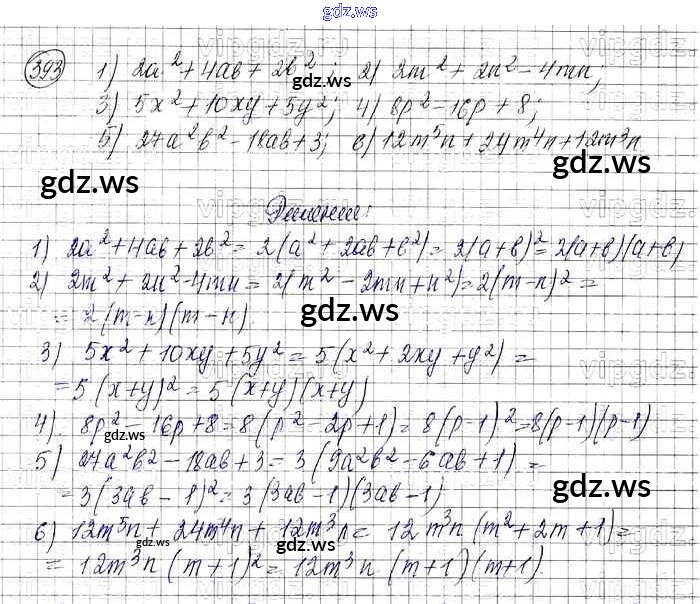 gdz.ws
393 1) 2a² + 4ab + 2b²; 2) 2m² + 2n² - 4mn;
3) 5x² + 10xy + 5y²; 4) 8p² - 16p + 8;
5) 27a²b² - 18ab + 3; 6) 12m⁵n + 24m⁴n + 12m³n
Решение:
1) 2a² + 4ab + 2b² = 2(a² + 2ab + b²) = 2(a + b)² = 2(a+b)(a+b)
2) 2m² + 2n² - 4mn = 2(m² - 2mn + n²) = 2(m-n)² =
= 2(m-n)(m-n).
3) 5x² + 10xy + 5y² = 5(x² + 2xy + y²) =
= 5(x+y)² = 5(x+y)(x+y)
4) 8p² - 16p + 8 = 8(p² - 2p + 1) = 8(p-1)² = 8(p-1)(p-1)
5) 27a²b² - 18ab + 3 = 3(9a²b² - 6ab + 1) =
= 3(3ab - 1)² = 3(3ab - 1)(3ab - 1)
6) 12m⁵n + 24m⁴n + 12m³n = 12m³n(m² + 2m + 1) =
= 12m³n(m + 1)² = 12m³n(m+1)(m+1).